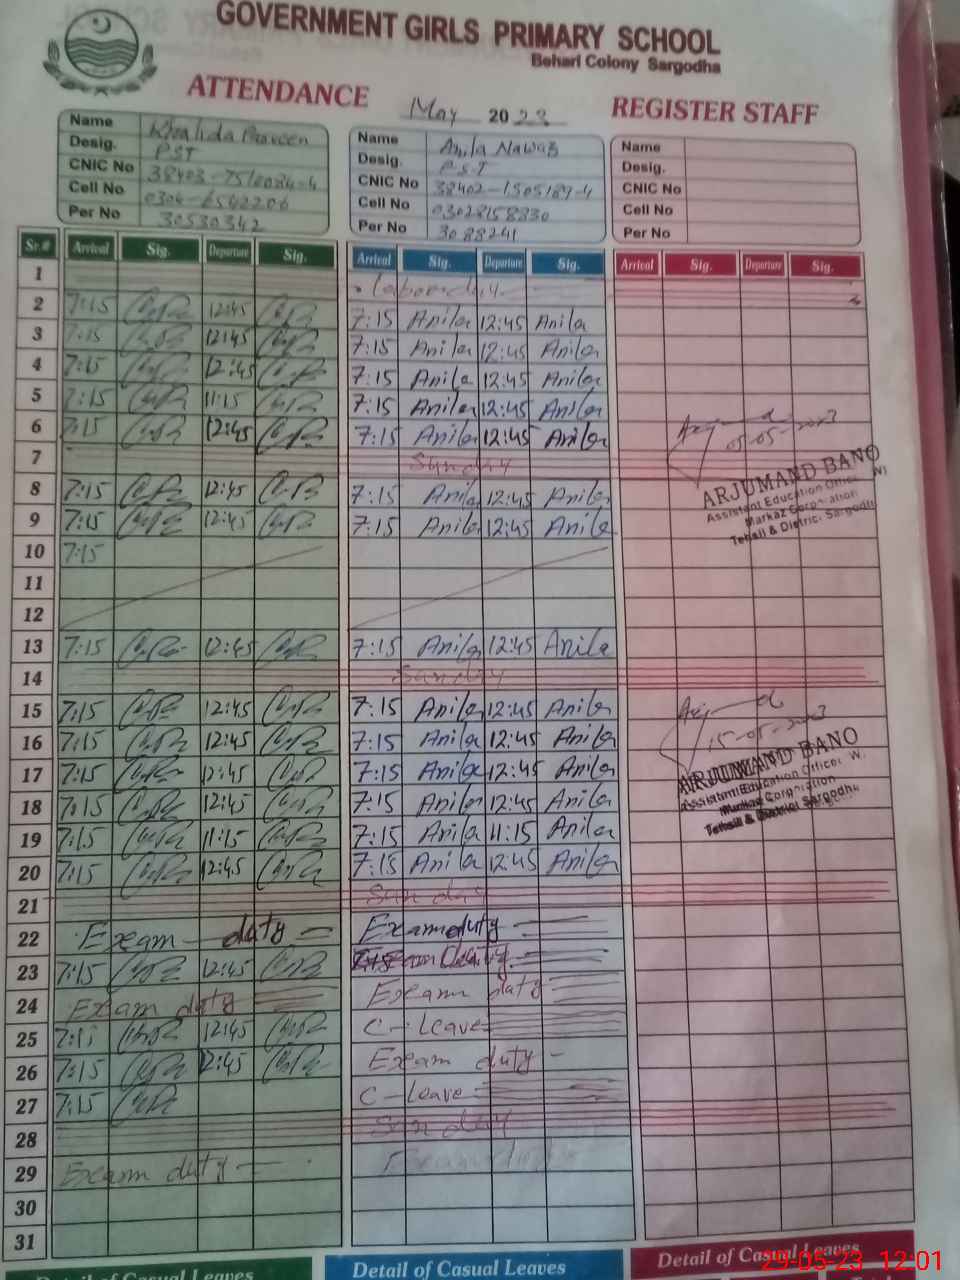 GOVERNMENT GIRLS PRIMARY SCHOOL
Behari Colony Sargodha
ATTENDANCE May 2023 REGISTER STAFF
Name Khalida Parveen Name Anila Nawaz Name
Desig. PST Desig. P.S.T Desig.
CNIC No CNIC No 38402-1505189-4 CNIC No
Cell No 0304-6542206 Cell No 03028158830 Cell No
Per No 30530342 Per No 3088241 Per No
Sr.# Arrival Sig. Departure Sig. Arrival Sig. Departure Sig. Arrival Sig. Departure Sig.
1 Labour day
2 7:15 12:45 7:15 Anila 12:45 Anila
3 7:15 12:45 7:15 Anila 12:45 Anila
4 7:15 12:45 7:15 Anila 12:45 Anila
5 7:15 11:15 7:15 Anila 12:45 Anila
6 7:15 12:45 7:15 Anila 12:45 Anila
05-05-2023
7 Sunday
ARJUMAND BANO
8 7:15 12:45 7:15 Anila 12:45 Anila
Assistant Education Officer (W)
Markaz Corporation
9 7:15 12:45 7:15 Anila 12:45 Anila
Tehsil & District Sargodha
10 7:15
11
12
13 7:15 12:45 7:15 Anila 12:45 Anila
14 Sunday
15 7:15 12:45 7:15 Anila 12:45 Anila
15-05-2023
16 7:15 12:45 7:15 Anila 12:45 Anila
ARJUMAND BANO
17 7:15 12:45 7:15 Anila 12:45 Anila
Assistant Education Officer W
Markaz Corporation
18 7:15 12:45 7:15 Anila 12:45 Anila
Tehsil & District Sargodha
19 7:15 11:15 7:15 Anila 11:15 Anila
20 7:15 12:45 7:15 Anila 12:45 Anila
21 Sunday
22 Exam duty Exam duty
23 7:15 12:45 Exam duty
24 Exam duty Exam duty
25 7:15 12:45 C-leave
26 7:15 12:45 Exam duty
27 7:15 C-leave
28 Sunday
29 Exam duty Exam duty
30
31
Detail of Casual Leaves Detail of Casual Leaves Detail of Casual Leaves
29-05-23 12:01